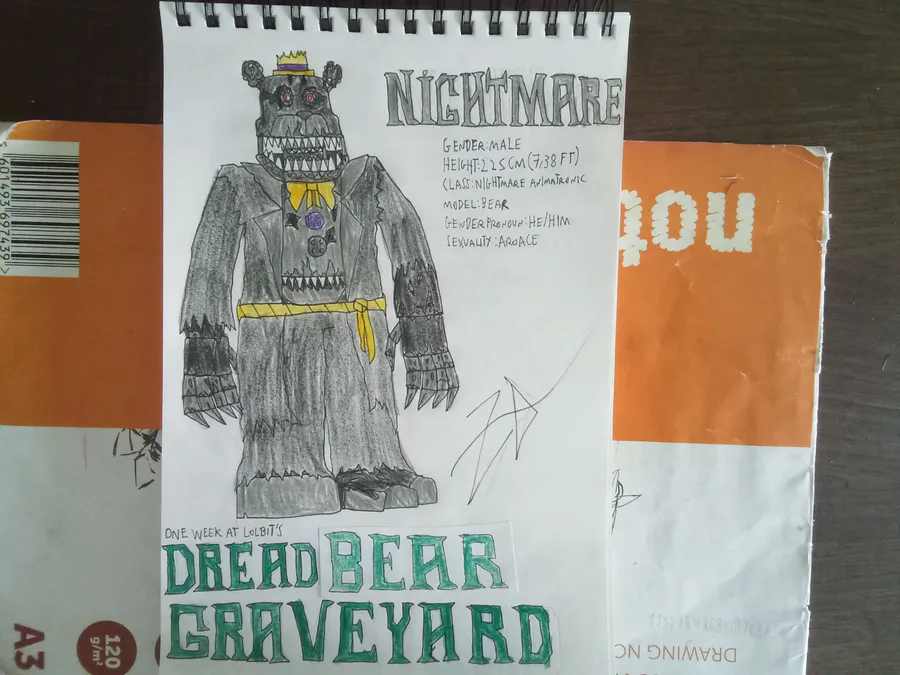 NIGHTMARE
GENDER:MALE
HEIGHT:225CM(7,38 FT)
CLASS:NIGHTMARE ANIMATRONIC
MODEL:BEAR
GENDER PRONOUN:HE/HIM
SEXUALITY:AROACE
ONE WEEK AT LOLBIT'S
DREADBEAR
GRAVEYARD
A3
120
g/m²
DRAWING NO